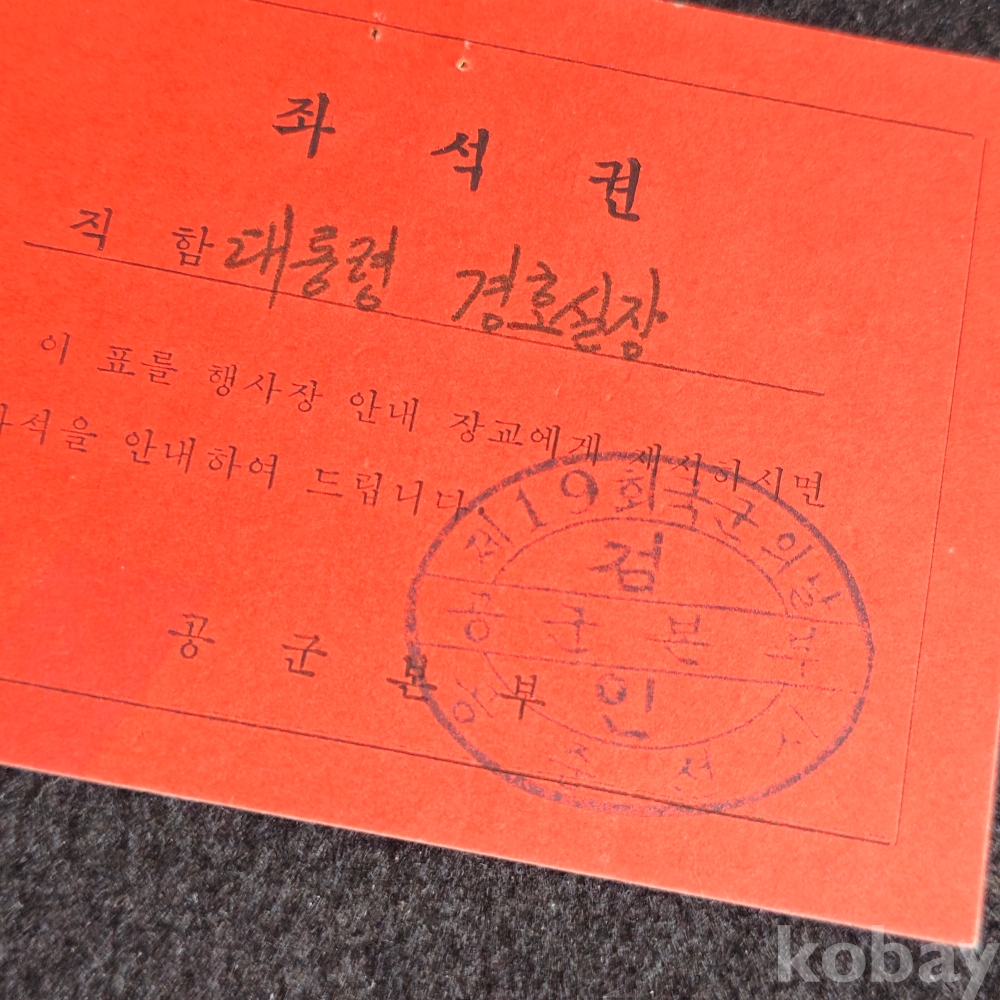 좌 석 권
직 함 대통령 경호실장
이 표를 행사장 안내 장교에게 제시하시면
좌석을 안내하여 드립니다.
공 군 본 부
제19회국군의날
검
공 군 본 부
인
kobay